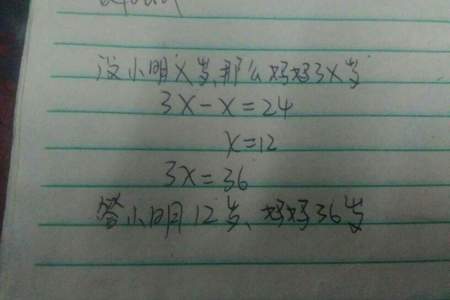 设小明X岁,那么妈妈3X岁
3X-X=24
X=12
3X=36
答小明12岁、妈妈36岁